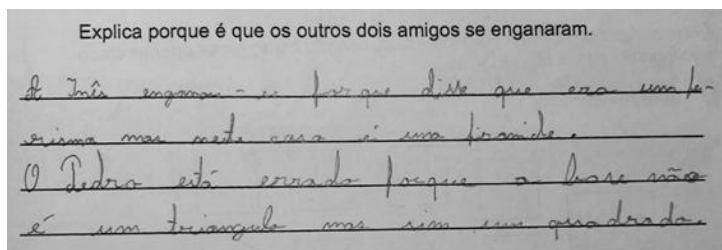 Explica porque é que os outros dois amigos se enganaram.
A Inês enganou-se porque disse que era um pe-
risma mas neste caso é uma piramide.
O Pedro está errado porque a base não
é um triangulo mas sim um quadrado.